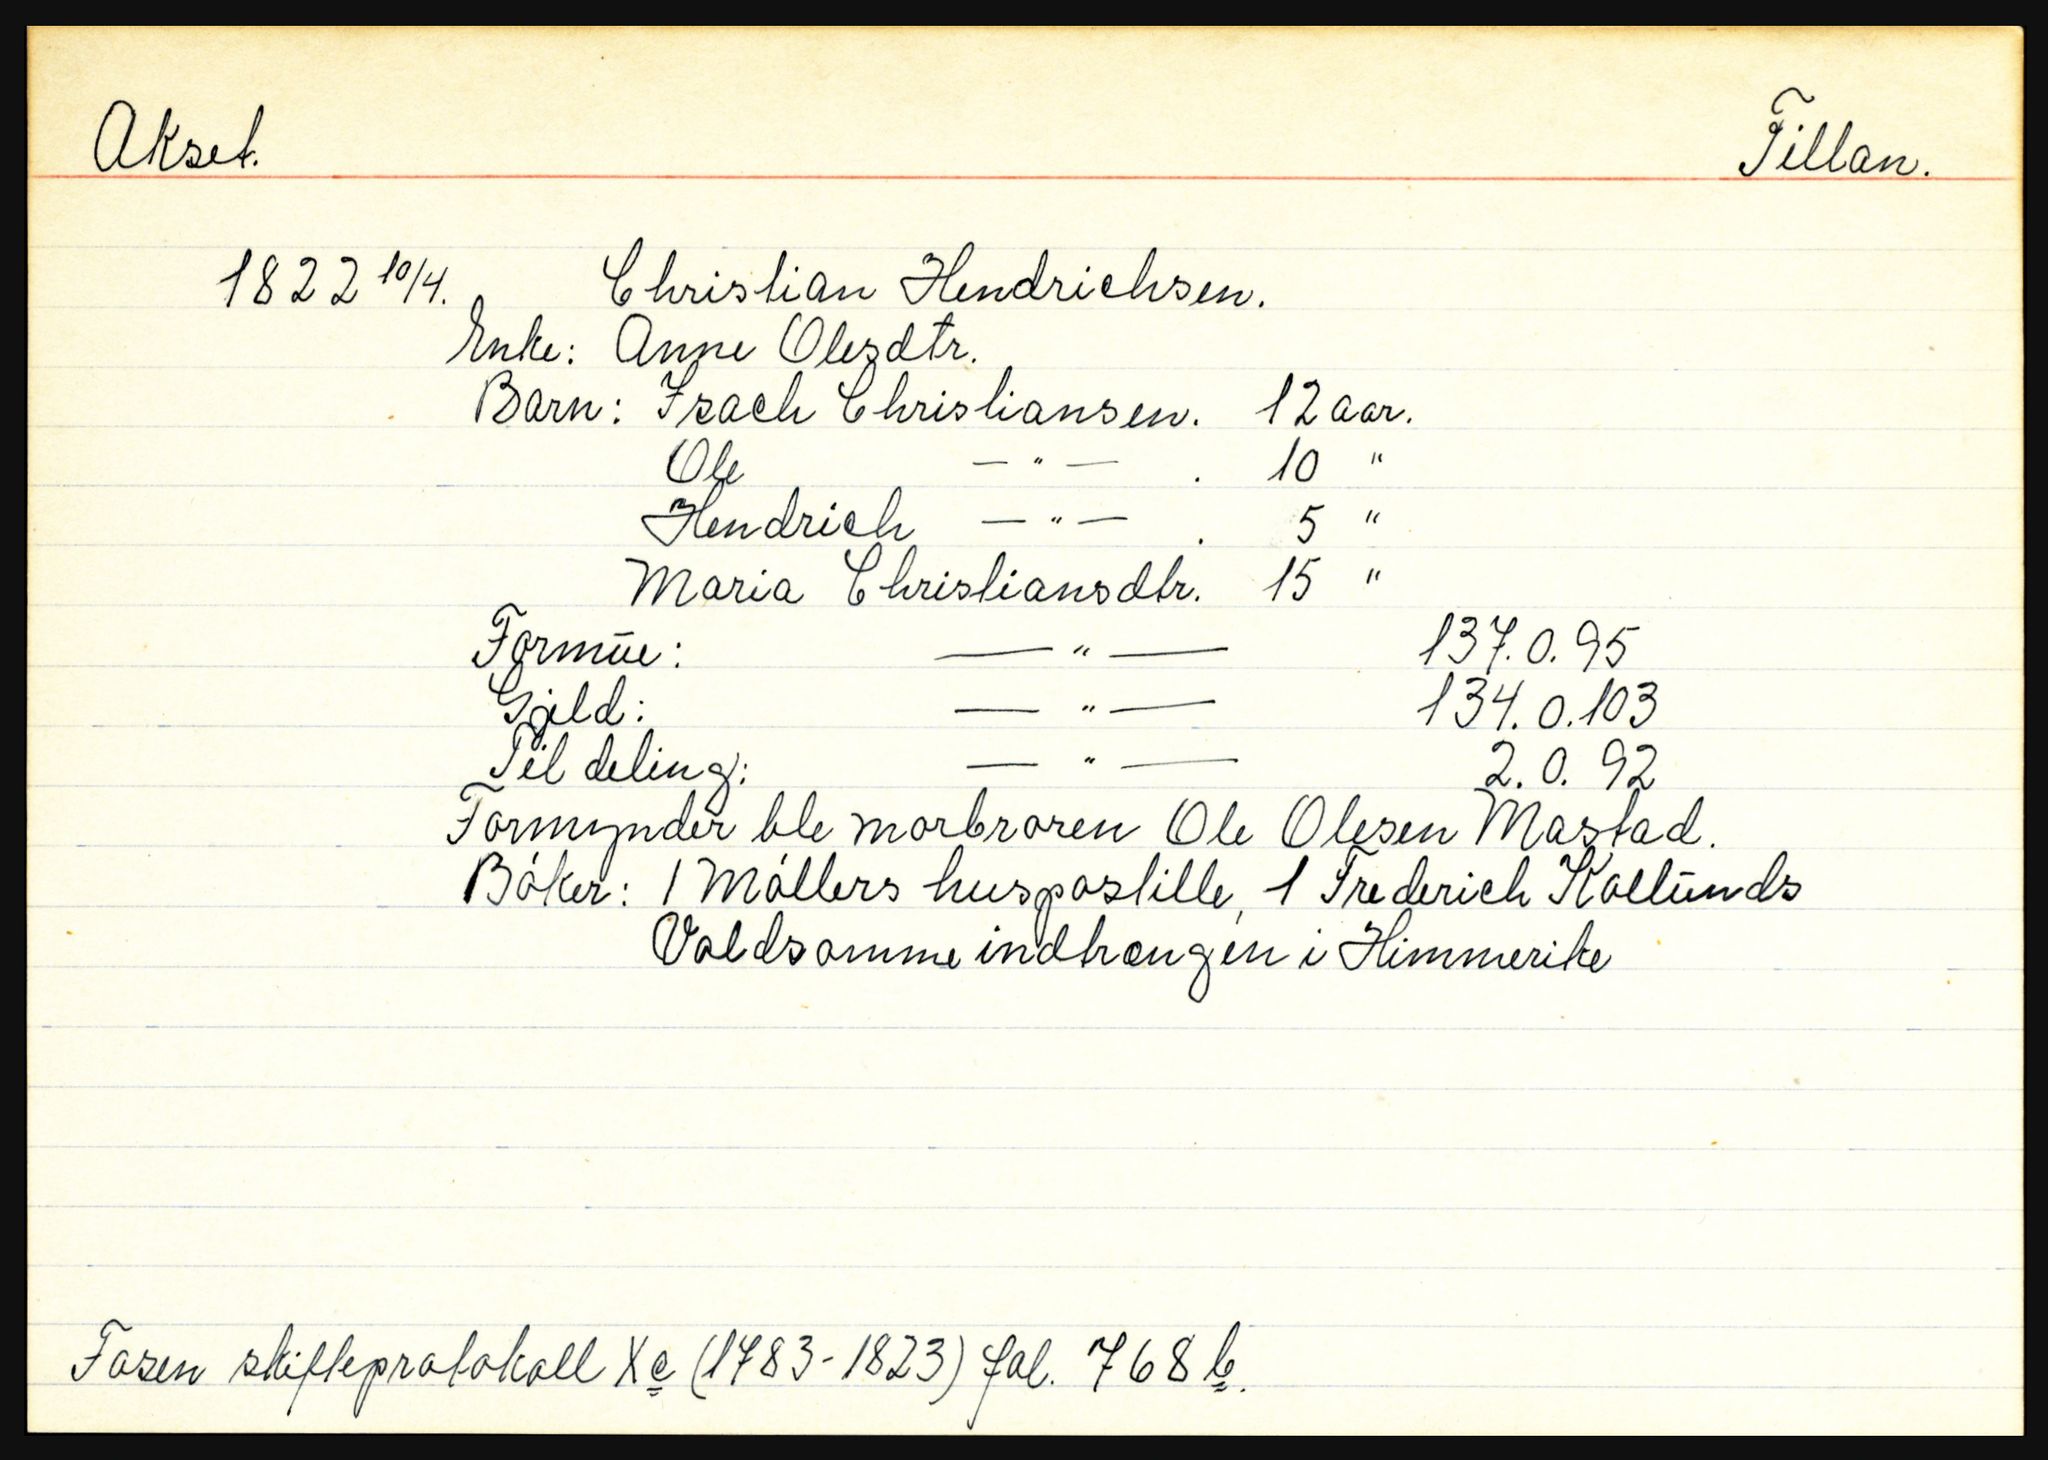 Akset. Fillan.
1822 10/4. Christian Hendrichsen.
Enke: Anne Olesdtr.
Barn: Isach Christiansen. 12 aar.
Ole —"— . 10 "
Hendrich —"— . 5 "
Maria Christiansdtr. 15 "
Formūe: —"— 137.0.95
Gjeld: —"— 134.0.103
Til deling: —"— 2.0.92
Formynder ble morbroren Ole Olesen Mastad.
Bóker: 1 Móllers huspostille, 1 Frederich Kollūnds
Voldsomme indtrængen i Himmerike
Fosen skifteprotokoll Xc (1783-1823) fol. 768 b.